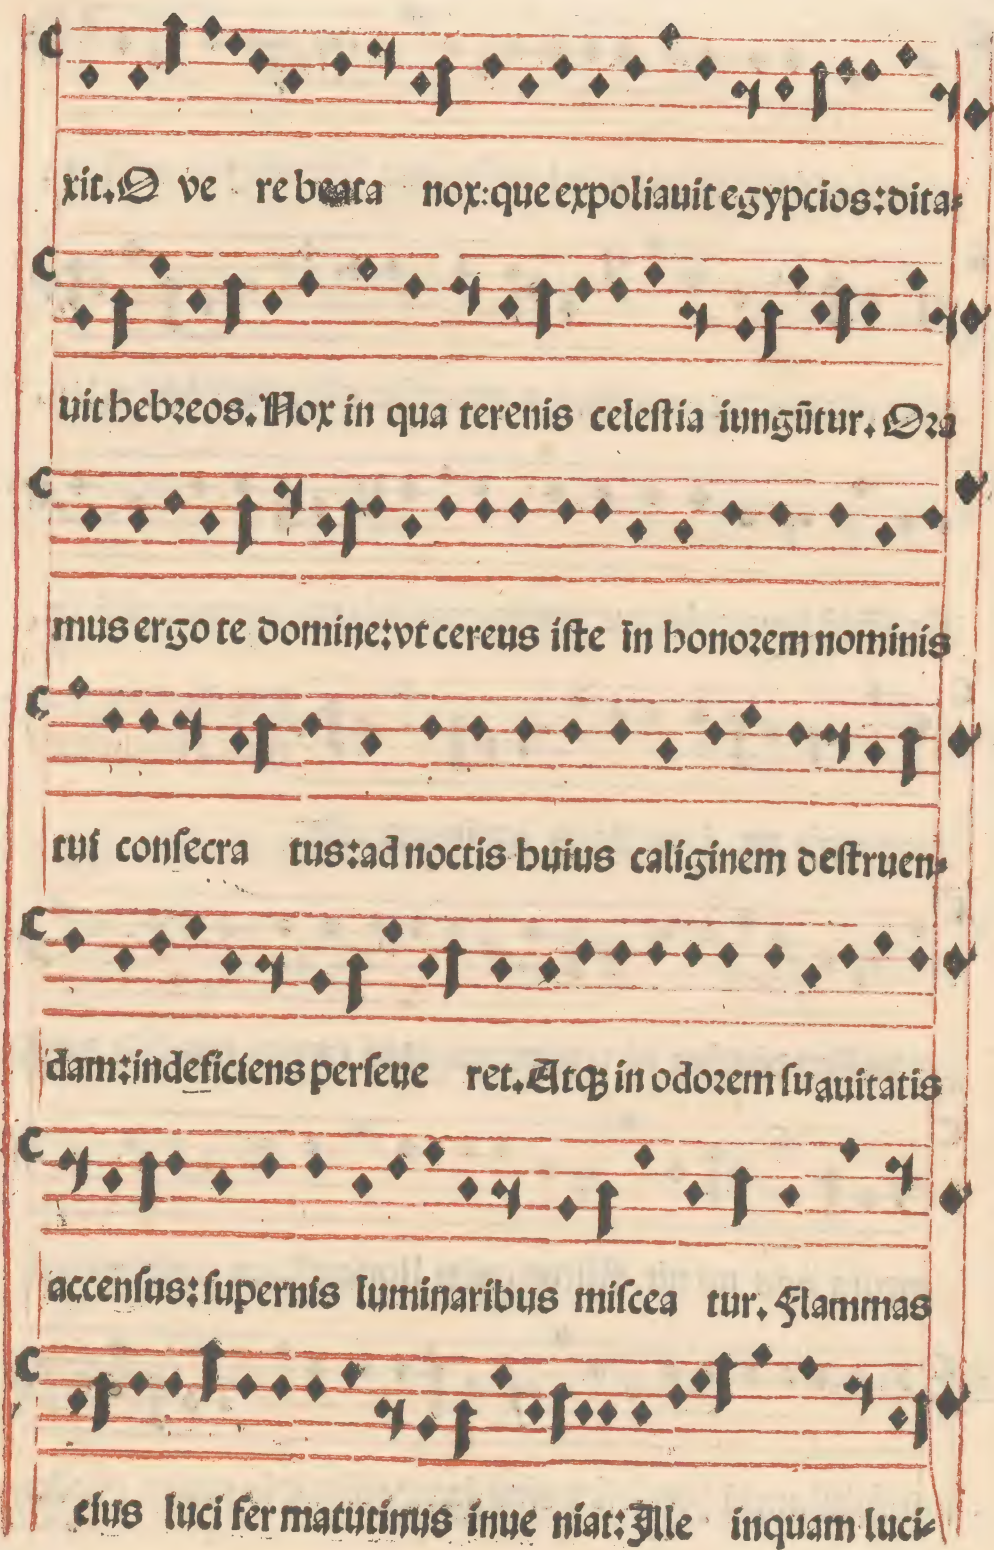 xit. O ve re beata nox: que expoliauit egypcios: dita-
uit hebreos. Nox in qua terenis celestia iungūtur. Ora
mus ergo te domine: vt cereus iste in honorem nominis
tui consecra tus: ad noctis huius caliginem destruen-
dam: indeficiens perseue ret. Atqꝫ in odorem suauitatis
accensus: supernis luminaribus miscea tur. Flammas
eius luci fer matutinus inue niat: Ille inquam luci-